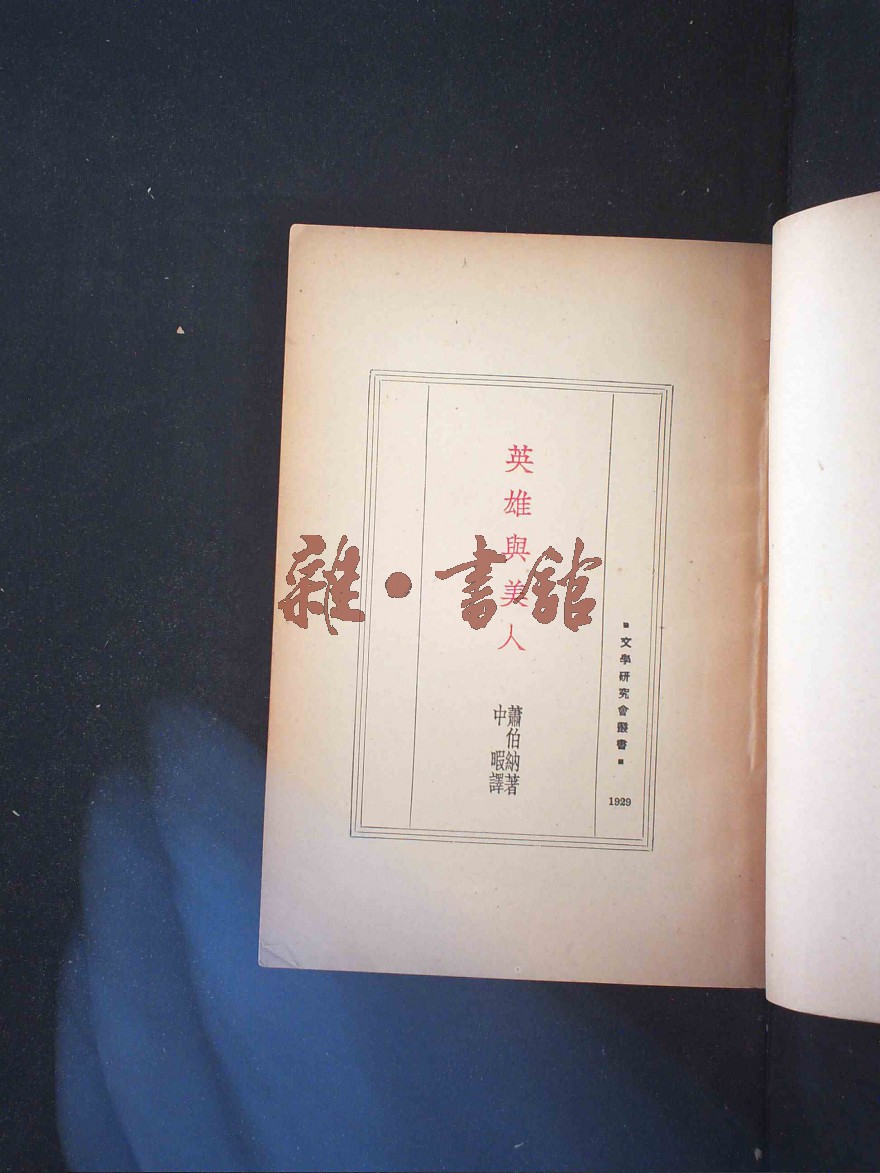 文學研究會叢書
1929
英雄與美人
蕭伯納著
中暇譯
雜·書館